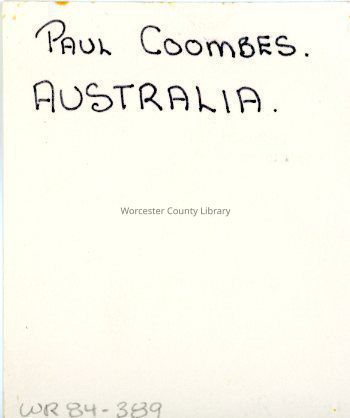 PAUL COOMBES.
AUSTRALIA.
Worcester County Library
WR 84-389